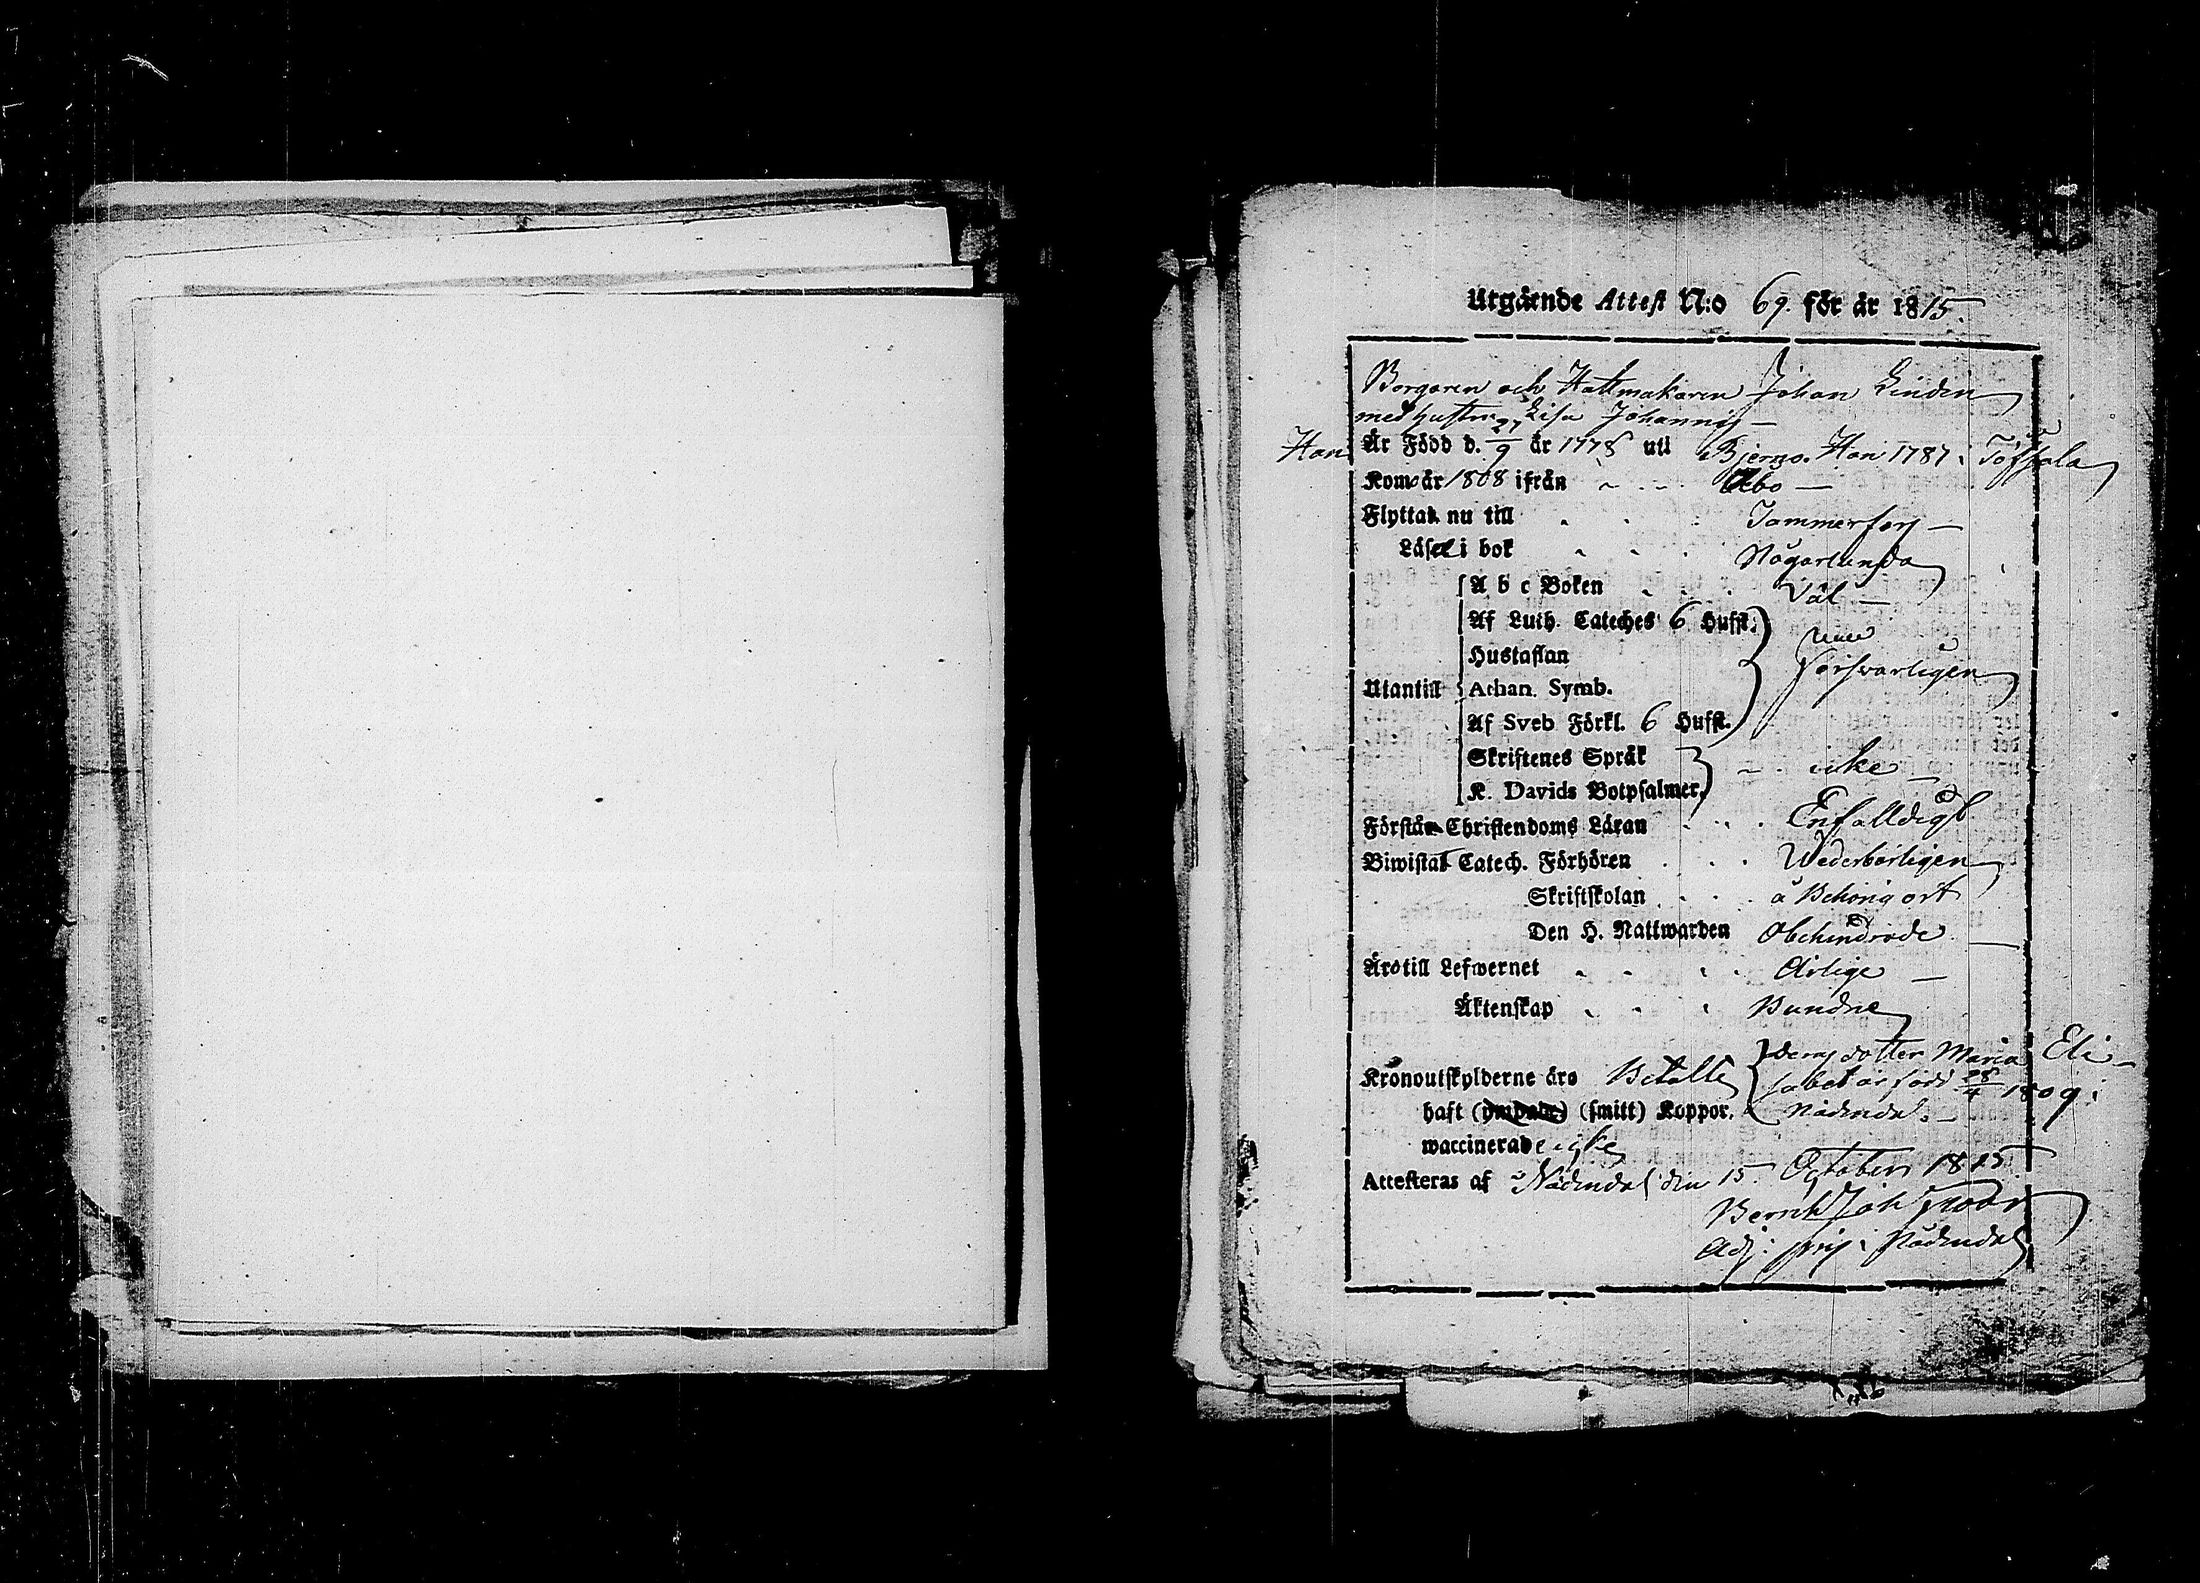 Utgående Attest N:o 69. för år 1815.
Borgaren och Hattmakaren Johan Lindén
med hustru Lisa Johannis
Han Är Född d. 27/9 år 1778 uti Bjerno. Hon 1787 i Töfsala
Komo år 1808 ifrån Åbo
Flyttat nu till Tammerfors
Läser i bok Någorlunda
A b c Boken Väl
Af Luth. Cateches 6 Hufst.
Hustaflan
Utantill Athan. Symb. försvarligen
Af Sveb Förkl. 6 Hufst.
Skriftenes Språk icke
K. Davids Botpsalmer.
Förstår Christendoms Läran Enfalldigt
Biwistat Catech. Förhören Wederbörligen
Skriftskolan å Behörig ort
Den H. Nattwarden Obehindrade
Äro till Lefwernet Ärlige
Äktenskap Bundne
deras dotter Maria Eli-
Kronoutskylderne äro Betalte sabet är född 28/4 1809 i
haft (smitt) Koppor. Nådendal.
waccinerade icke
Attesteras af Nådendal den 15. October 1815.
Bernh Joh
Adj: i Nådendal